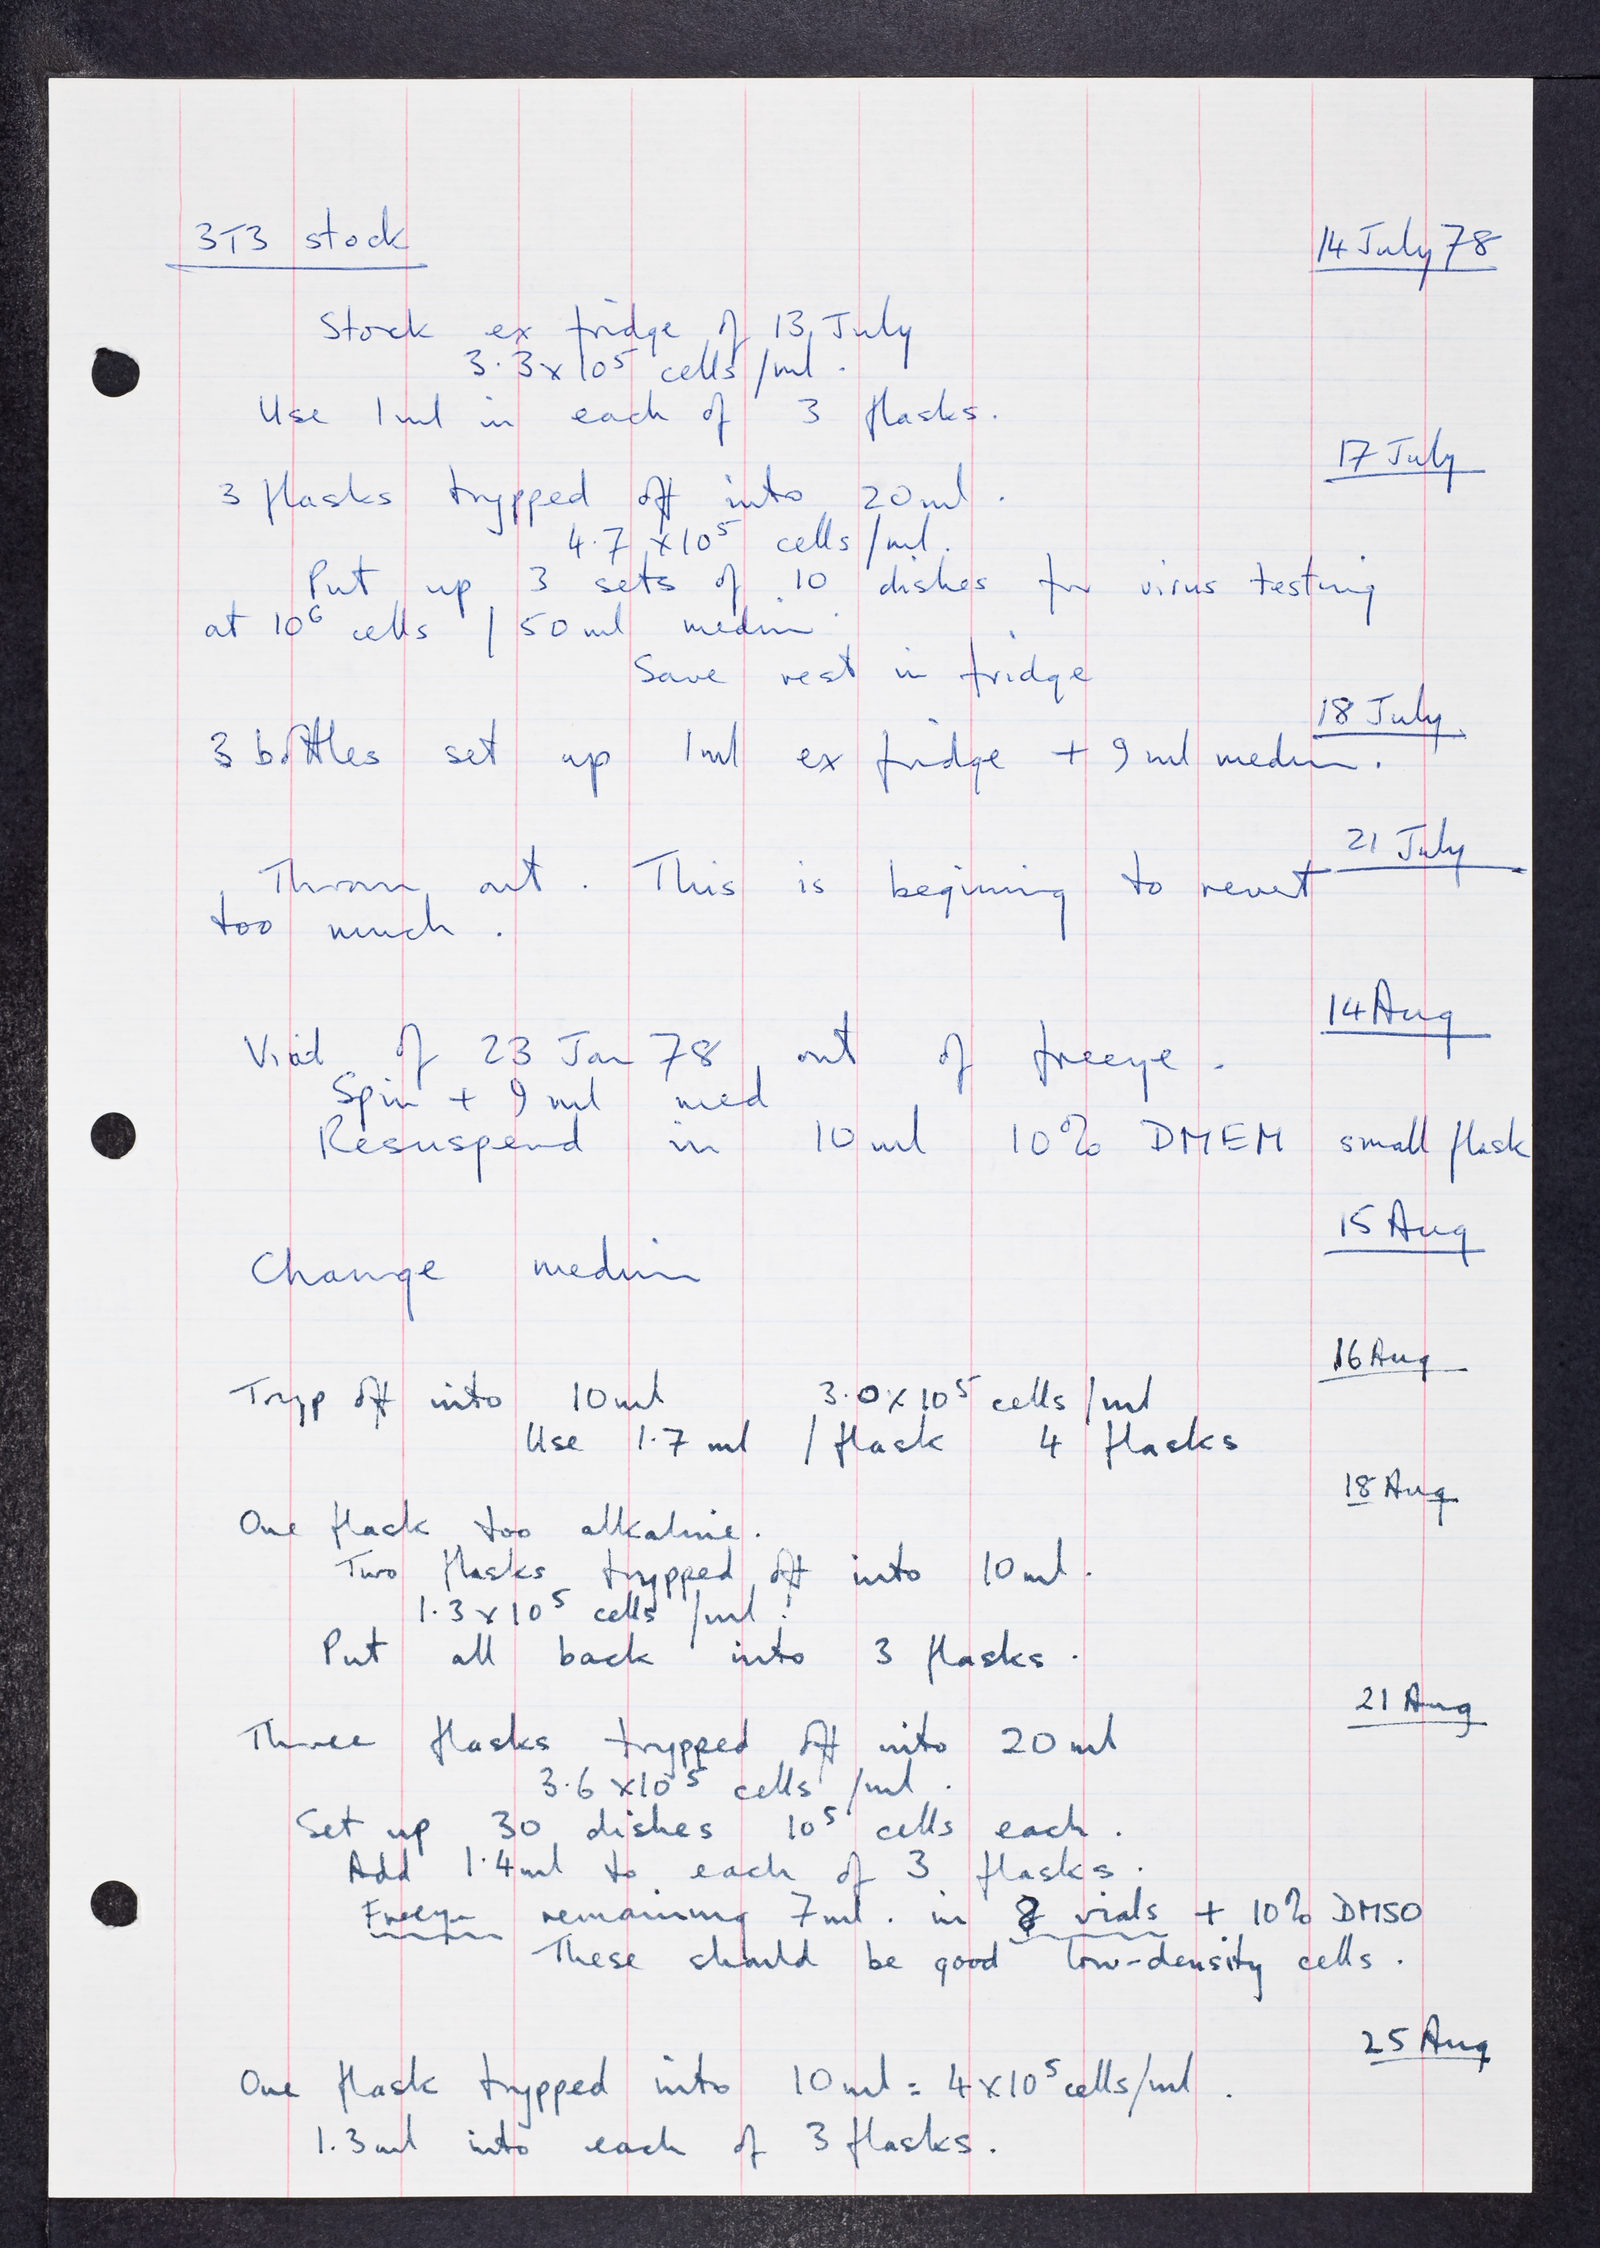 3T3 stock
14 July 78
Stock ex fridge of 13 July
3.3 x 10⁵ cells/ml.
Use 1ml in each of 3 flasks.
17 July
3 flasks trypped off into 20ml.
4.7 x 10⁵ cells/ml.
Put up 3 sets of 10 dishes for virus testing
at 10⁶ cells / 50ml medium
Save rest in fridge
18 July
3 bottles set up 1ml ex fridge + 9ml medium.
21 July
Thrown out. This is beginning to revert
too much.
14 Aug
Vial of 23 Jan 78 out of freeze.
Spin + 9ml med
Resuspend in 10ml 10% DMEM small flask
15 Aug
Change medium
16 Aug
Tryp off into 10ml 3.0 x 10⁵ cells/ml
Use 1.7 ml / flask 4 flasks
18 Aug
One flask too alkaline.
Two flasks trypped off into 10ml.
1.3 x 10⁵ cells/ml!
Put all back into 3 flasks.
21 Aug
Three flasks trypped off into 20ml
3.6 x 10⁵ cells/ml.
Set up 30 dishes 10⁵ cells each.
Add 1.4ml to each of 3 flasks.
Freeze remaining 7ml. in vials + 10% DMSO
These should be good low-density cells.
25 Aug
One flask trypped into 10ml = 4 x 10⁵ cells/ml.
1.3ml into each of 3 flasks.